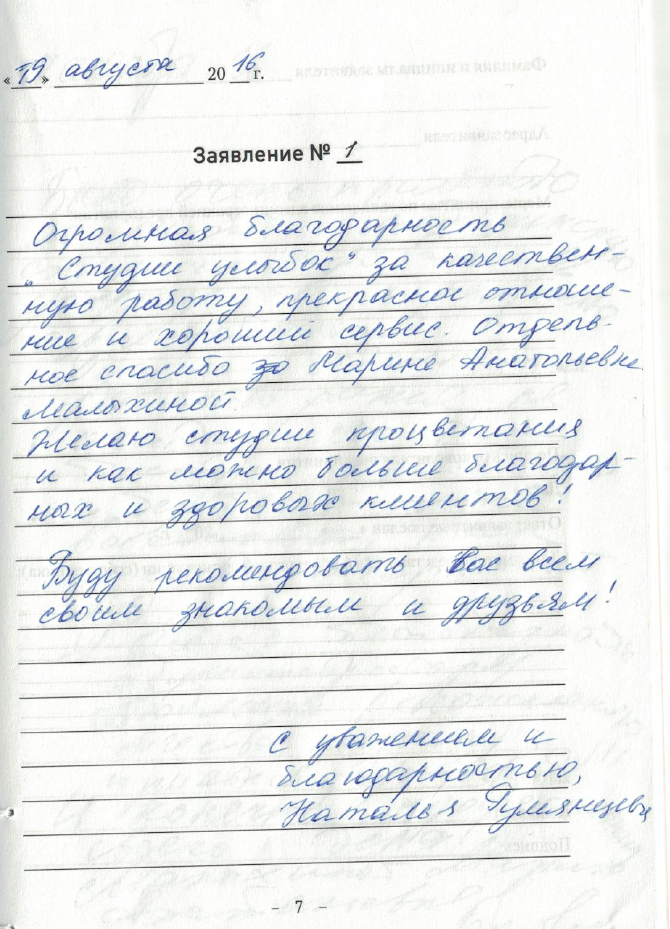 «19» августа 2016 г.
Заявление № 1
Огромная благодарность
"Студии улыбок" за качествен-
ную работу, прекрасное отноше-
ние и хороший сервис. Отдель-
ное спасибо Марине Анатольевне
Малыхиной.
Желаю студии процветания
и как можно больше благодар-
ных и здоровых клиентов!
Буду рекомендовать Вас всем
своим знакомым и друзьям!
С уважением и
благодарностью,
Наталья Румянцева
- 7 -